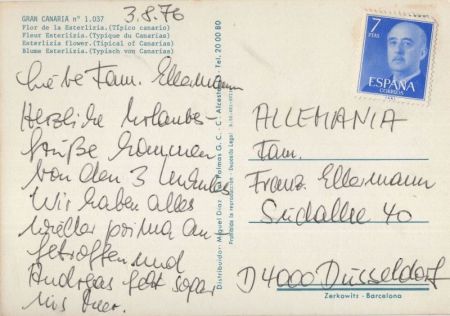 GRAN CANARIA nº 1.037
Flor de la Esterlizia. (Típico canario)
Fleur Esterlizia. (Typique du Canarias)
Esterlizia flower. (Tipical of Canarias)
Blume Esterlizia. (Typisch von Canarias)
3.8.76
Liebe Fam. Ellermann
Herzliche Urlaubs-
grüße kommen
von den 3
Wir haben alles
wieder prima an-
getroffen und
Andreas geht sogar
ins Meer.
Distribuidor: Miguel Diaz - Palmas G. C. - C. Alcest Tel. 20 00 80
Prohibida la reproducción - Depósito Legal
7
PTAS
ESPAÑA
CORREOS
ALLEMANIA
Fam.
Franz Ellermann
Südallee 40
D 4000 Düsseldorf
Zerkowitz - Barcelona